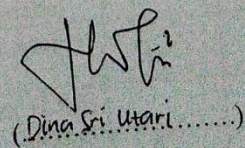 (Dina Sri Utari.......)